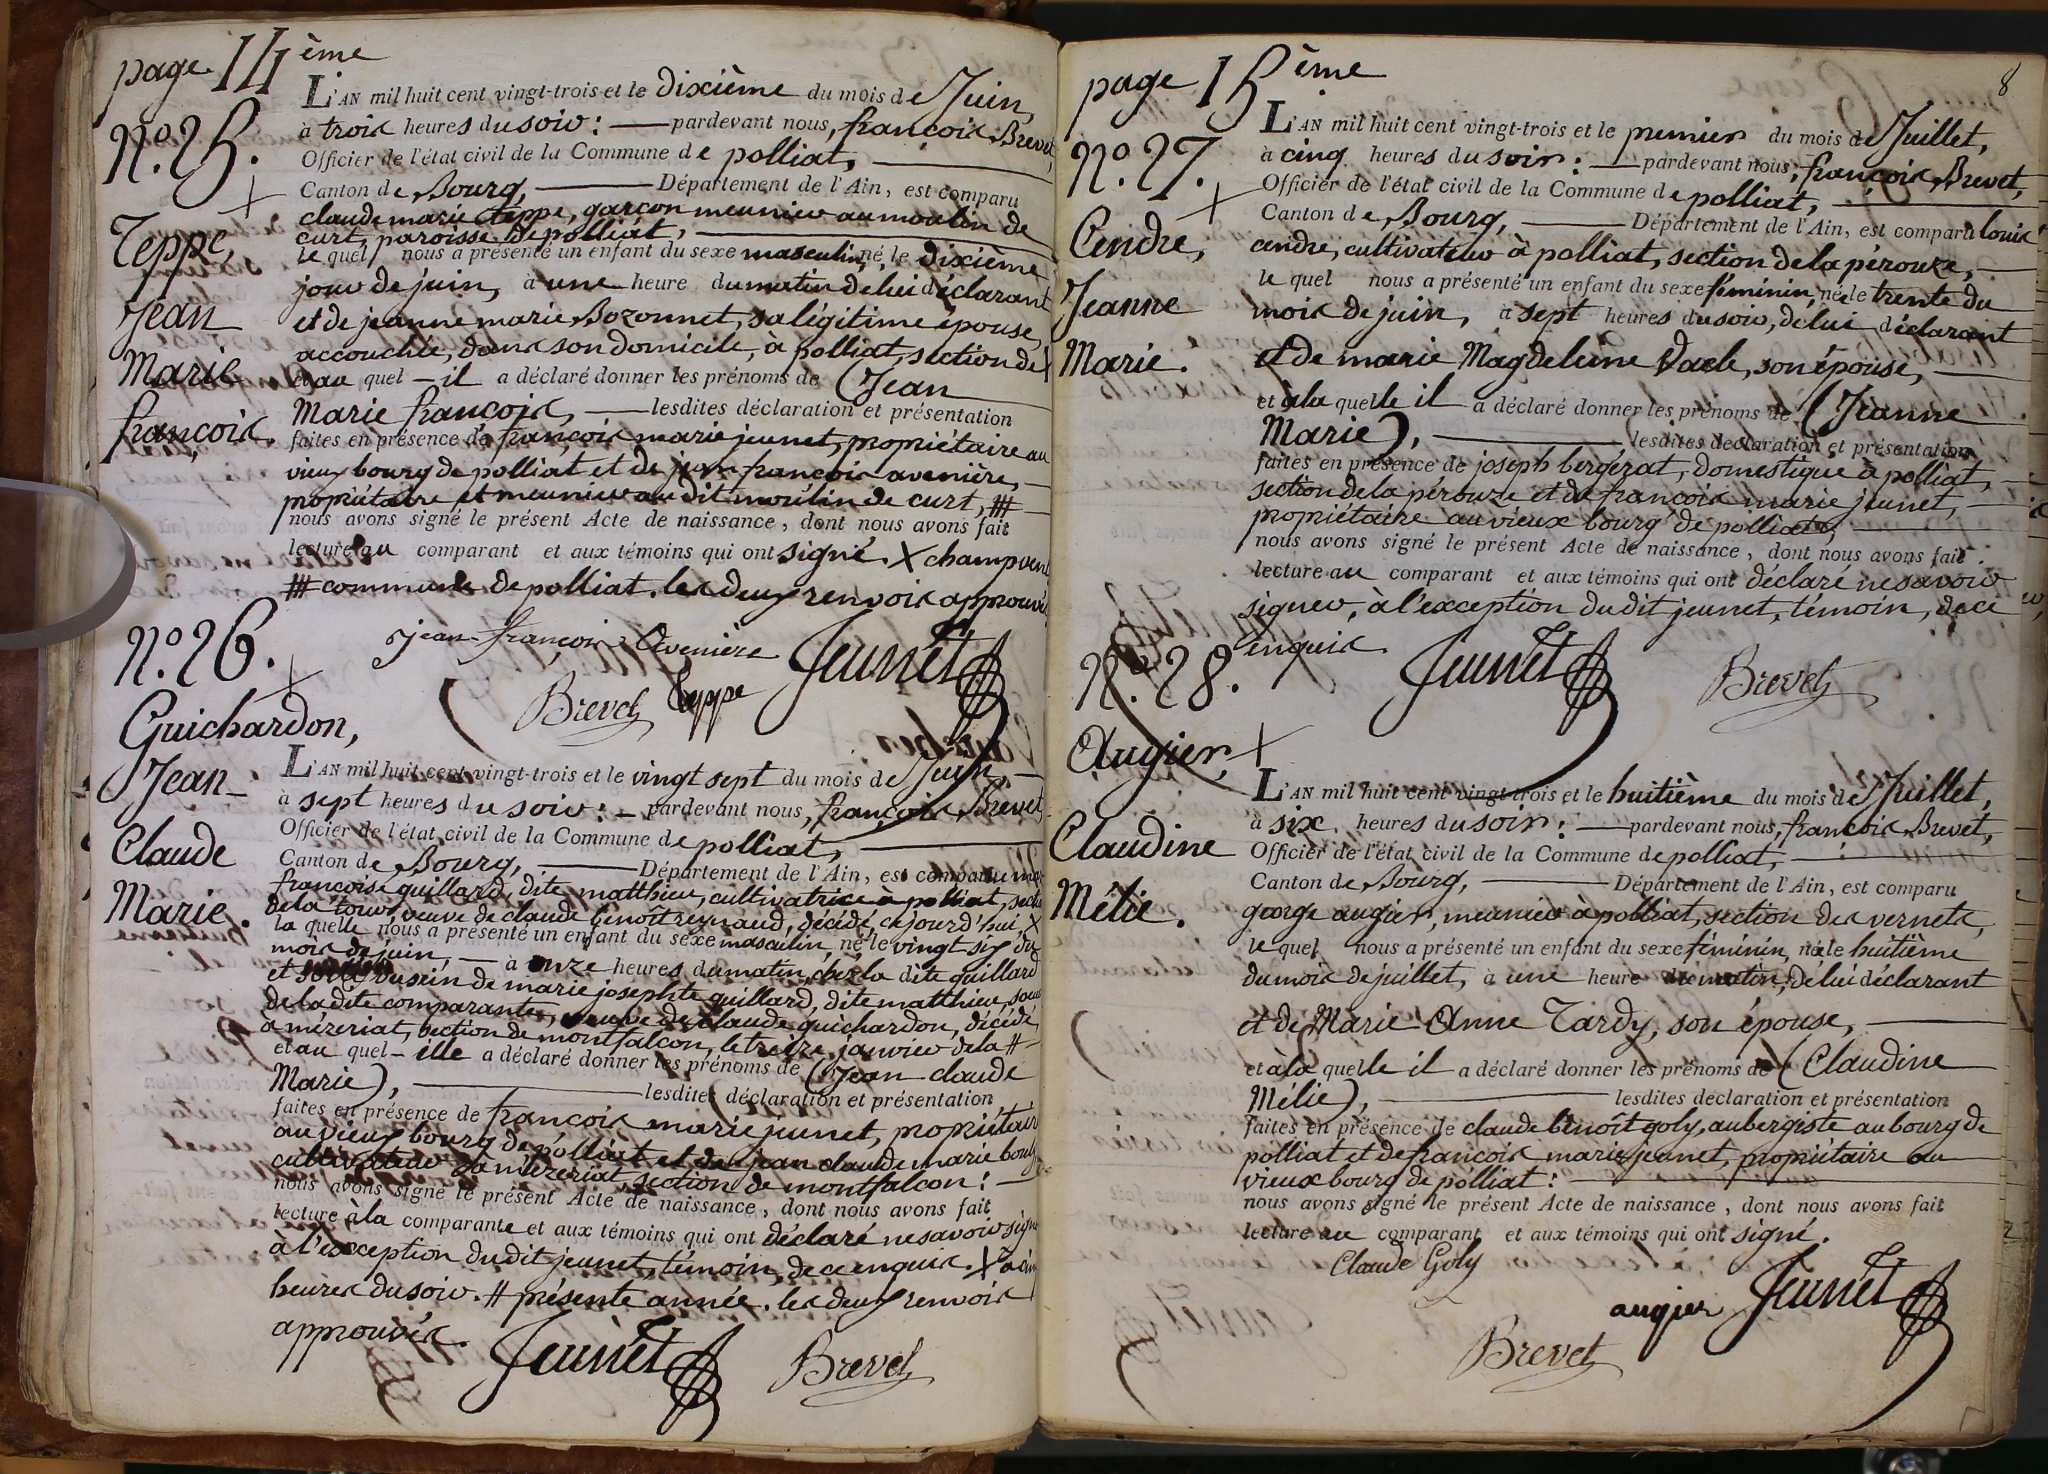 page 14ème
N.º 25.
Teppe,
Jean
Marie
françois.
L'AN mil huit cent vingt-trois et le dixième du mois de Juin,
à trois heures du soir : — pardevant nous, françois Brevet,
Officier de l'état civil de la Commune de polliat,
Canton de Bourg, — Département de l'Ain, est comparu
claude marie teppe, garçon meunier au moulin de
curt, paroisse de polliat,
le quel nous a présenté un enfant du sexe masculin, né, le dixième
jour de juin, à une heure du matin de lui déclarant
et de jeanne marie Bozonnet, sa légitime épouse,
accouchée, dans son domicile, a polliat, section de X
et au quel — il a déclaré donner les prénoms de (Jean
Marie françois, — lesdites déclaration et présentation
faites en présence de françois marie jeunet, propriétaire au
vieux bourg de polliat et de jean françois avenière, —
propriétaire et meunier au dit moulin de curt, #
nous avons signé le présent Acte de naissance, dont nous avons fait
lecture au comparant et aux témoins qui ont signé. X champvent
# commune de polliat. les deux renvois approuvés
jean-françois Avenière Jeunet
Brevet teppe
N.º 26.
Guichardon,
Jean
Claude
Marie.
L'AN mil huit cent vingt-trois et le vingt sept du mois de Juin, —
à sept heures du soir : — pardevant nous, françois Brevet,
Officier de l'état civil de la Commune de polliat,
Canton de Bourg, — Département de l'Ain, est comparu
françoise guillard, dite matthieu, cultivatrice à polliat,
de la tour, veuve de claude benoît reynaud, décédé, cejourd'hui, X
la quelle nous a présenté un enfant du sexe masculin, né le vingt six du
mois de juin, — à onze heures du matin, chez la dite guillard
et du sein de marie josephte guillard, dite matthieu, soeur
de la dite comparante, veuve de claude guichardon, décédé
a mézeriat, section de montfalcon, le treize janvier de la #
et au quel — ille a déclaré donner les prénoms de (Jean claude
Marie), — lesdites déclaration et présentation
faites en présence de françois marie jeunet, propriétaire
au vieux bourg de polliat et de jean claude marie
cultivateur à mézeriat, section de montfalcon : —
nous avons signé le présent Acte de naissance, dont nous avons fait
lecture à la comparante et aux témoins qui ont déclaré ne savoir signer
à l'exception du dit jeunet, témoin, de ce enquis. X à cinq
heures du soir. # présente année. les deux renvois
approuvés.
Jeunet Brevet
page 15ème
8
N.º 27.
Cendre,
Jeanne
Marie.
L'AN mil huit cent vingt-trois et le premier du mois de Juillet,
à cinq heures du soir : — pardevant nous, françois Brevet,
Officier de l'état civil de la Commune de polliat, —
Canton de Bourg, — Département de l'Ain, est comparu louis
cendre, cultivateur à polliat, section de la pérouze, —
le quel nous a présenté un enfant du sexe féminin, né le trente du
mois de juin, à sept heures du soir, de lui déclarant
et de marie Magdeleine Vacle, son épouse, —
et à la quelle il a déclaré donner les prénoms de (Jeanne
Marie), — lesdites declaration et présentation
faites en présence de joseph bergérat, domestique à polliat, —
section de la pérouze et de françois marie jeunet, —
propriétaire au vieux bourg de polliat, —
nous avons signé le présent Acte de naissance, dont nous avons fait
lecture au comparant et aux témoins qui ont déclaré ne savoir
signer, à l'exception du dit jeunet, témoin, de ce
enquis.
Jeunet Brevet
N.º 28.
Augier,
Claudine
Mélie.
L'AN mil huit cent vingt-trois et le huitième du mois de Juillet,
à six heures du soir : — pardevant nous, françois Brevet,
Officier de l'état civil de la Commune de polliat, —
Canton de Bourg, — Département de l'Ain, est comparu
george augier, meunier à polliat, section des vernets,
le quel nous a présenté un enfant du sexe féminin, né le huitième
du mois de juillet, à une heure du matin, de lui déclarant
et de Marie Anne Tardy, son épouse, —
et à la quelle il a déclaré donner les prénoms de (Claudine
Mélie), — lesdites declaration et présentation
faites en présence de claude benoît goly, aubergiste au bourg de
polliat et de françois marie jeunet, propriétaire au
vieux bourg de polliat : —
nous avons signé le présent Acte de naissance, dont nous avons fait
lecture au comparant et aux témoins qui ont signé.
Claude Goly
augier Jeunet
Brevet